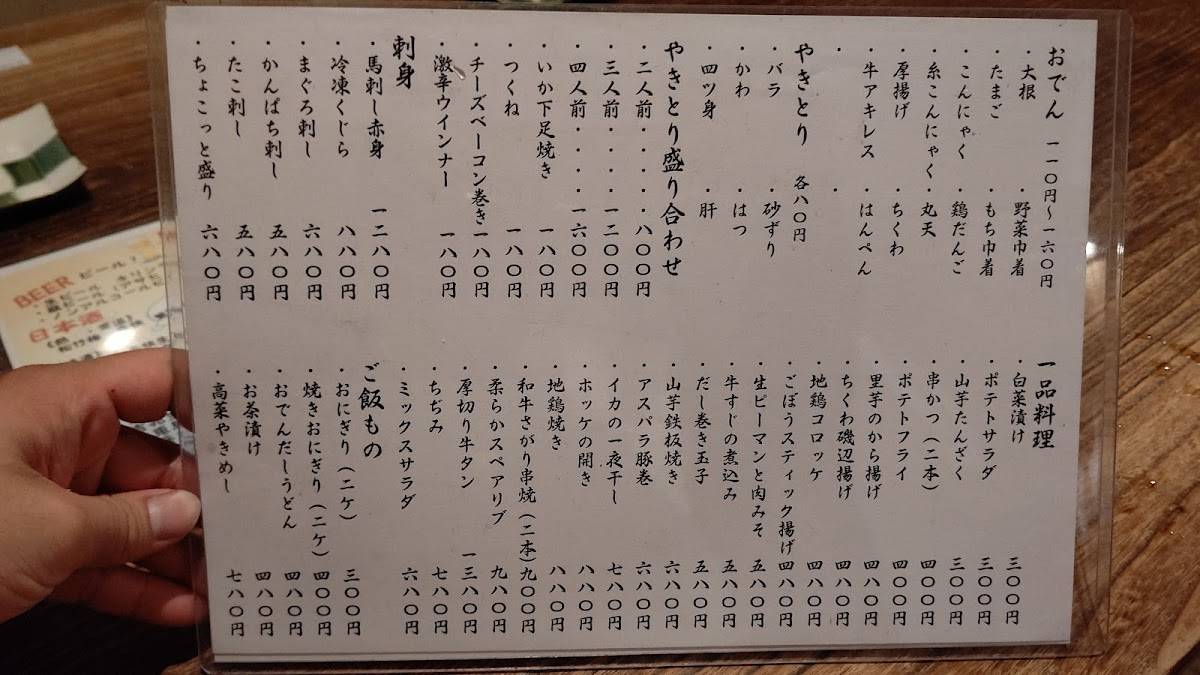 おでん 一一〇円～一六〇円
・大根 ・野菜巾着
・たまご ・もち巾着
・こんにゃく ・鶏だんご
・糸こんにゃく ・丸天
・厚揚げ ・ちくわ
・牛アキレス ・はんぺん
・ ・
やきとり 各八〇円
・バラ ・砂ずり
・かわ ・はつ
・四ツ身 ・肝
やきとり盛り合わせ
・二人前・・・・八〇〇円
・三人前・・・・一二〇〇円
・四人前・・・・一六〇〇円
・いか下足焼き 一八〇円
・つくね 一八〇円
・チーズベーコン巻き 一八〇円
・激辛ウインナー 一八〇円
刺身
・馬刺し赤身 一二八〇円
・冷凍くじら 八八〇円
・まぐろ刺し 六八〇円
・かんぱち刺し 五八〇円
・たこ刺し 五八〇円
・ちょこっと盛り 六八〇円
一品料理
・白菜漬け 三〇〇円
・ポテトサラダ 三〇〇円
・山芋たんざく 三〇〇円
・串かつ（二本） 四〇〇円
・ポテトフライ 四〇〇円
・里芋のから揚げ 四八〇円
・ちくわ磯辺揚げ 四八〇円
・地鶏コロッケ 四八〇円
・ごぼうスティック揚げ 四八〇円
・生ピーマンと肉みそ 五八〇円
・牛すじの煮込み 五八〇円
・だし巻き玉子 五八〇円
・山芋鉄板焼き 六八〇円
・アスパラ豚巻 六八〇円
・イカの一夜干し 七八〇円
・ホッケの開き 八八〇円
・地鶏焼き 八八〇円
・和牛さがり串焼（二本） 九〇〇円
・柔らかスペアリブ 九八〇円
・厚切り牛タン 一三八〇円
・ちぢみ 七八〇円
・ミックスサラダ 六八〇円
ご飯もの
・おにぎり（二ケ） 三〇〇円
・焼きおにぎり（二ケ） 四〇〇円
・おでんだしうどん 四八〇円
・お茶漬け 四八〇円
・高菜やきめし 七八〇円
BEER ビール
日本酒